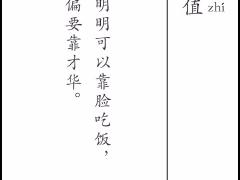 值 zhí
明明可以靠脸吃饭，
偏要靠才华。